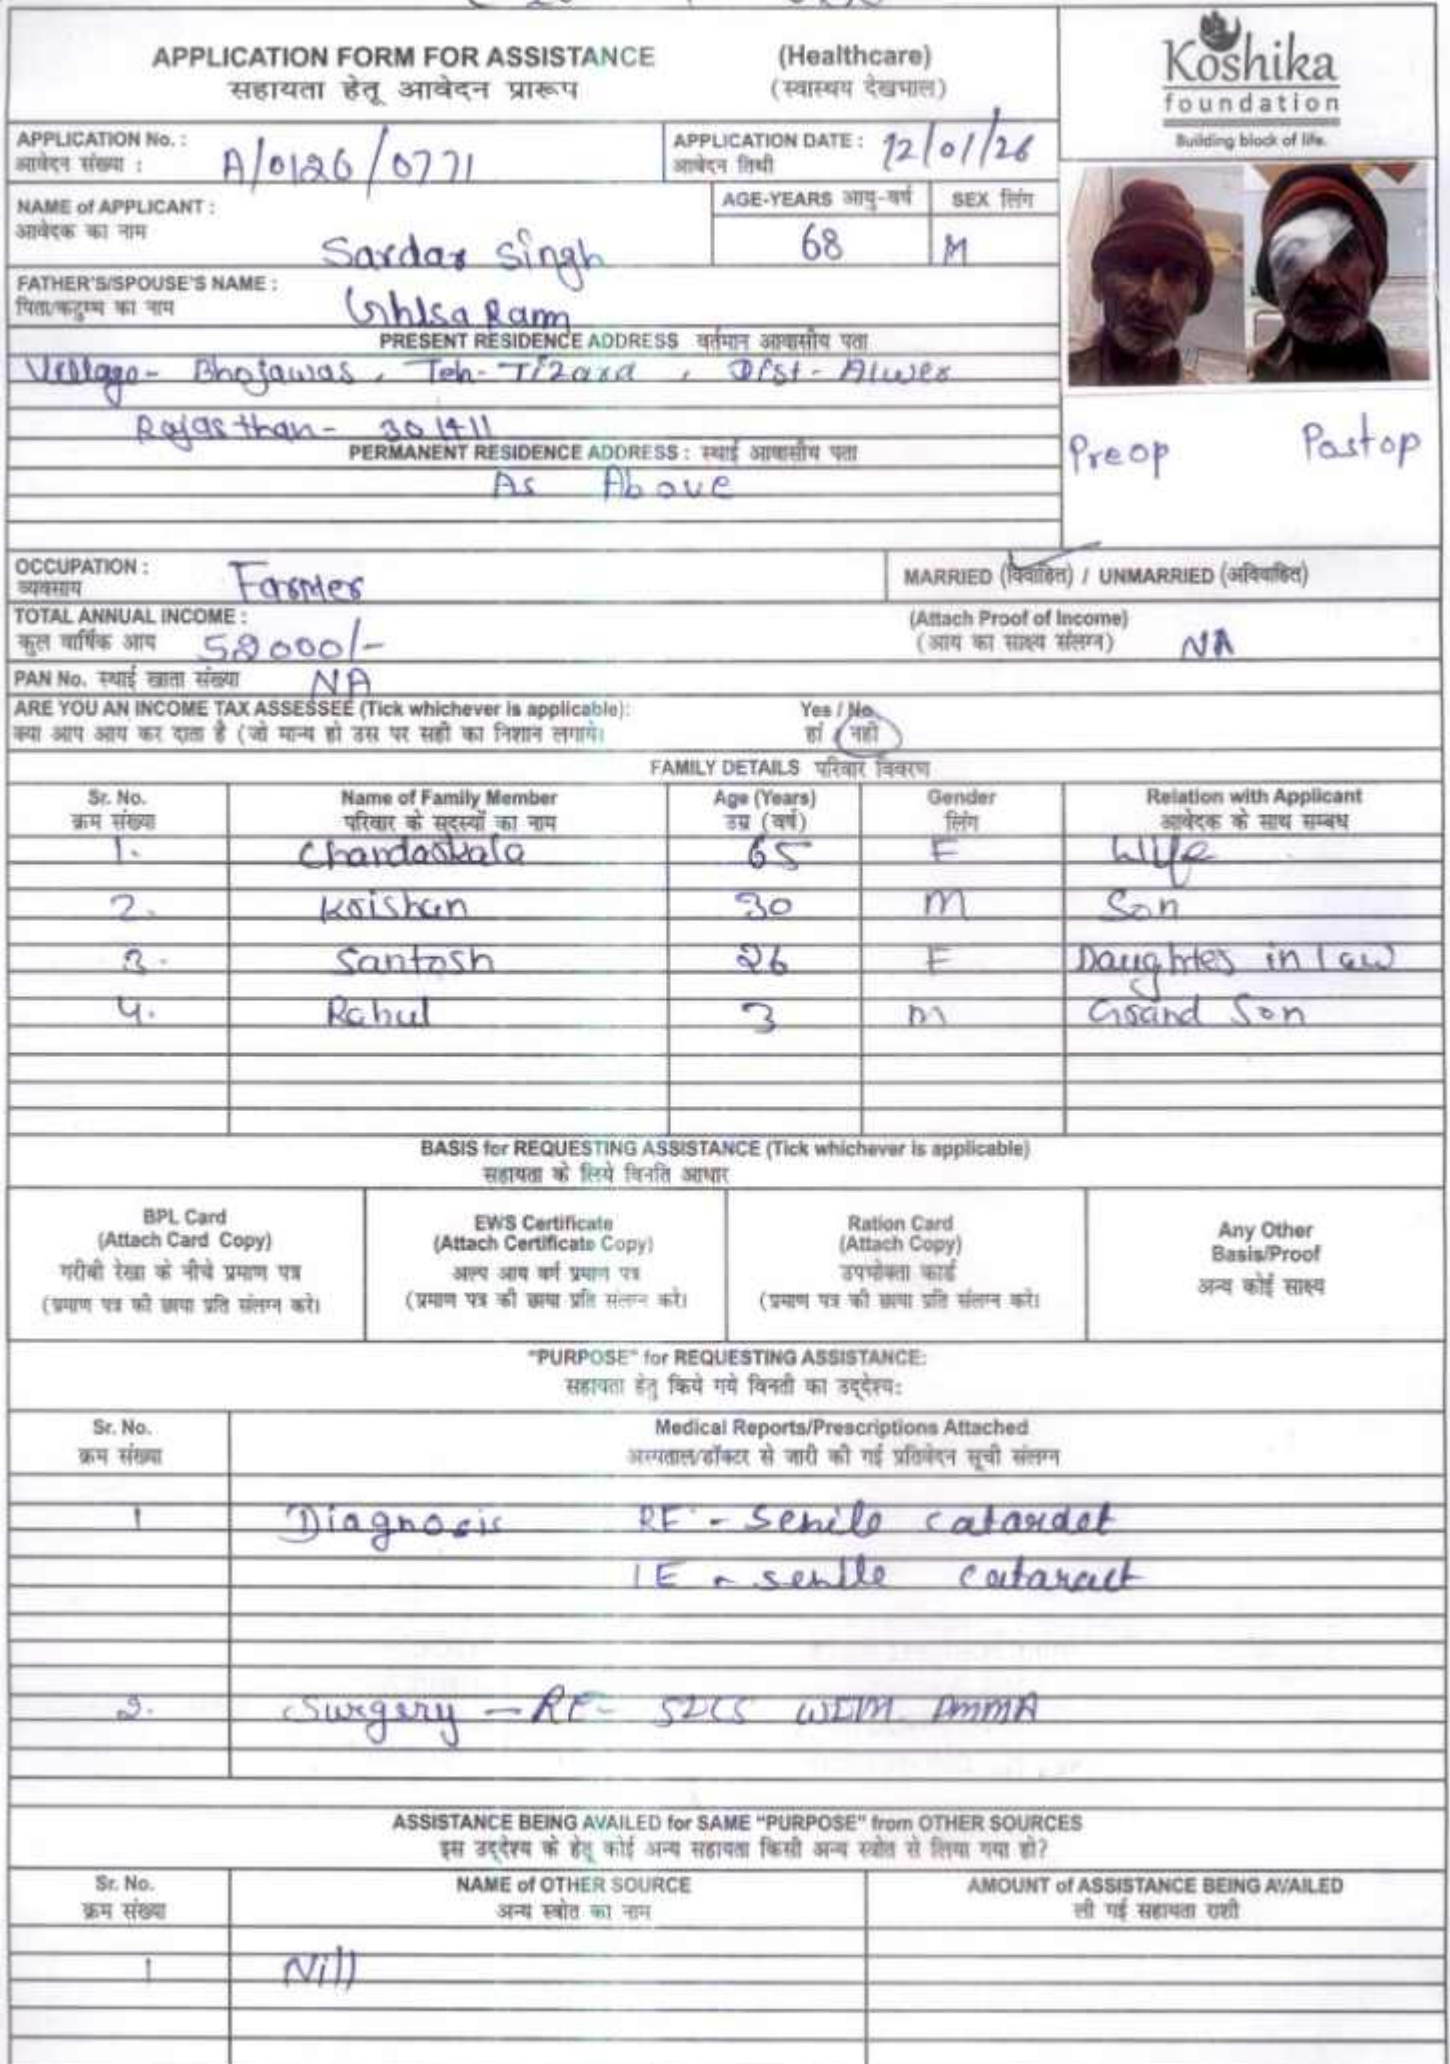 APPLICATION FORM FOR ASSISTANCE (Healthcare)
सहायता हेतू आवेदन प्रारूप (स्वास्थय देखभाल)
Koshika
foundation
Building block of life.
APPLICATION No. : A/0126/0771
आवेदन संख्या :
APPLICATION DATE : 12/01/26
आवेदन तिथी
NAME of APPLICANT : Sardar Singh
आवेदक का नाम
AGE-YEARS आयु-वर्ष 68
SEX लिंग M
FATHER'S/SPOUSE'S NAME : Ghisa Ram
पिता/कटुम्ब का नाम
PRESENT RESIDENCE ADDRESS वर्तमान आवासीय पता
Village- Bhojawas, Teh- Tizara, Dist- Alwer
Rajasthan- 301411
PERMANENT RESIDENCE ADDRESS : स्थाई आवासीय पता
As Above
Preop Postop
OCCUPATION : Farmer
व्यवसाय
MARRIED (विवाहित) / UNMARRIED (अविवाहित)
TOTAL ANNUAL INCOME : 52000/-
कुल वार्षिक आय
(Attach Proof of Income)
(आय का साक्ष्य संलग्न) NA
PAN No. स्थाई खाता संख्या NA
ARE YOU AN INCOME TAX ASSESSEE (Tick whichever is applicable): Yes / No
क्या आप आय कर दाता है (जो मान्य हो उस पर सही का निशान लगाये। हां नहीं
FAMILY DETAILS परिवार विवरण
Sr. No. Name of Family Member Age (Years) Gender Relation with Applicant
क्रम संख्या परिवार के सदस्यों का नाम उम्र (वर्ष) लिंग आवेदक के साथ सम्बध
1. Chandarkala 65 F Wife
2. Krishan 30 M Son
3. Santosh 26 F Daughter in law
4. Rahul 3 M Grand Son
BASIS for REQUESTING ASSISTANCE (Tick whichever is applicable)
सहायता के लिये विनति आधार
BPL Card
(Attach Card Copy)
गरीबी रेखा के नीचे प्रमाण पत्र
(प्रमाण पत्र की छाया प्रति संलग्न करे।
EWS Certificate
(Attach Certificate Copy)
अल्प आय वर्ग प्रमाण पत्र
(प्रमाण पत्र की छाया प्रति संलग्न करे।
Ration Card
(Attach Copy)
उपभोक्ता कार्ड
(प्रमाण पत्र की छाया प्रति संलग्न करे।
Any Other
Basis/Proof
अन्य कोई साक्ष्य
"PURPOSE" for REQUESTING ASSISTANCE:
सहायता हेतु किये गये विनती का उद्देश्य:
Sr. No. Medical Reports/Prescriptions Attached
क्रम संख्या अस्पताल/डॉक्टर से जारी की गई प्रतिवेदन सूची संलग्न
1 Diagnosis RE - Senile cataract
LE - senile cataract
2. Surgery - RE- SICS WITH PMMA
ASSISTANCE BEING AVAILED for SAME "PURPOSE" from OTHER SOURCES
इस उद्देश्य के हेतू कोई अन्य सहायता किसी अन्य स्त्रोत से लिया गया हो?
Sr. No. NAME of OTHER SOURCE AMOUNT of ASSISTANCE BEING AVAILED
क्रम संख्या अन्य स्त्रोत का नाम ली गई सहायता राशी
1 Nill